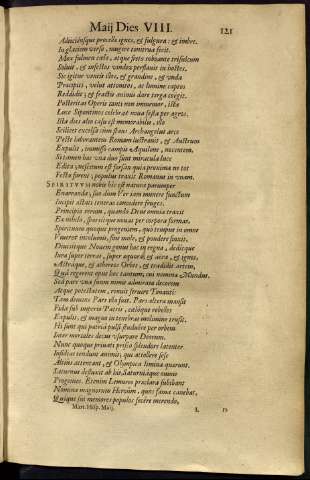 Maij Dies VIII. 121
Adijciénsque procellis ignes, et fulgura; et imbre,
In glaciem verso, mugire tonitrua fecit.
Mox fulmen cælo, atque seros roborante trisulcum
Soluit, et infestos vindex perflauit in hostes.
Sic igitur ventis illos, et grandine, et vnda
Præcipiti, velut attonitos, ac lumine captos
Reddidit; et fractis animis dare terga coegit.
Posteritas Operis tanti non immemor, ista
Luce Sipontinos celebrat noua festa per agros.
Ista dies alio casu est memorabilis, illo
Scilicet excelsa cum stans Archangelus arce
Peste laborantem Romam lustrauit, et Austrum
Expulit, immisso campis Aquilone, nocentem.
Si tamen hac vna duo sunt miracula luce
Edita; nescitum est forsan quia proxima ne tot
Festa forent; populus traxit Romanus in vnam.
SPIRITVVM nobis hic est natura parumper
Enarranda, suo dum Ver iam munere functum
Incipit æstatis teneras concedere fruges.
Principio rerum, quando Deus omnia traxit
Ex nihilo, speciesque nouas per corpora formas,
Spirituum quoque progeniem, quo tempus in omne
Viueret incolumis, sine mole, et pondere finxit.
Diuisitque Nouem genus hoc in regna, deditque
Iura super terras, super æquora, et aëra, et ignes,
Astráque, et æthereos Orbes, et tradidit artem,
Quâ regerent opus hoc tantum; cui nomina Mundus.
Sed pars vna suum nimis admirata decorem
Atque potestatem, renuit seruire Tonanti.
Tam demens Pars illa fuit. Pars altera mansit
Fida sub imperio Patris, cælóque rebelles
Expulit, et magno in tenebras molimine trusit.
Hi sunt qui patria pulsi fraudulos per orbem
Inter mortales decus vsurpare Deorum.
Nunc quoque priuati prisco splendore latenter
Insidias tendunt animis, qui attollere sese
Altius attentant, et Olympica limina quærunt.
Saturnus defluxit ab his, Saturniaque omnis
Progenies. Etenim Lemures præclara subibant
Nomina magnorum Heroum, quos fama canebat,
Quíque sui memores populos fecêre merendo,
Mart. Hisp. Maij. L Is